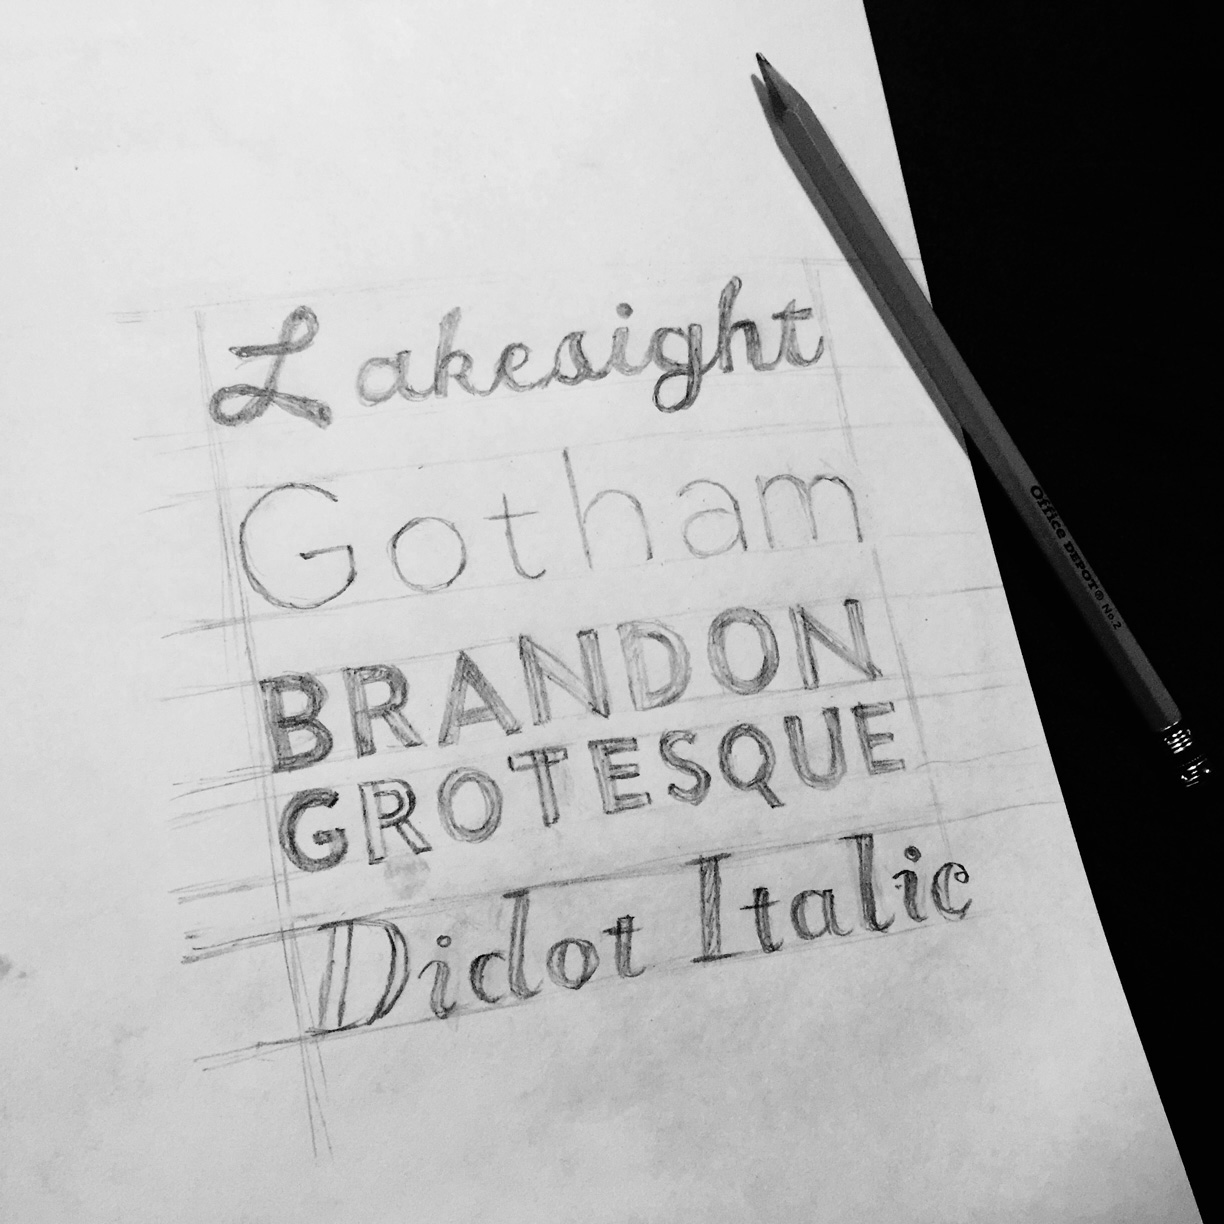 Lakesight
Gotham
BRANDON
GROTESQUE
Didot Italic
Office DEPOT® No.2